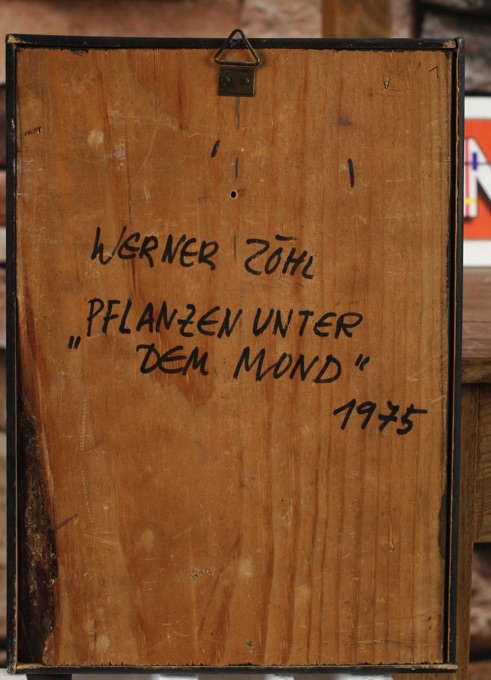 WERNER ZÖHL
"PFLANZEN UNTER
DEM MOND"
1975
N